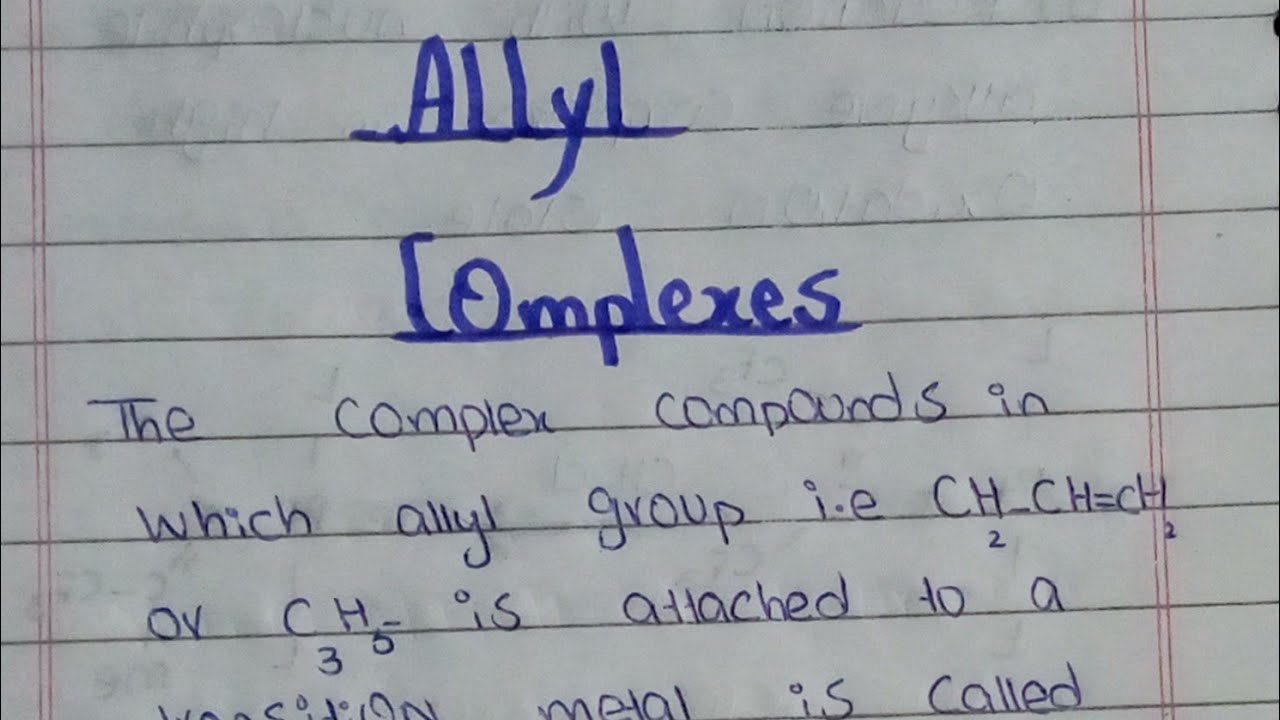 Allyl
Complexes
The complex compounds in
which allyl group i.e CH₂-CH=CH₂
or C₃H₅ is attached to a
transition metal is called